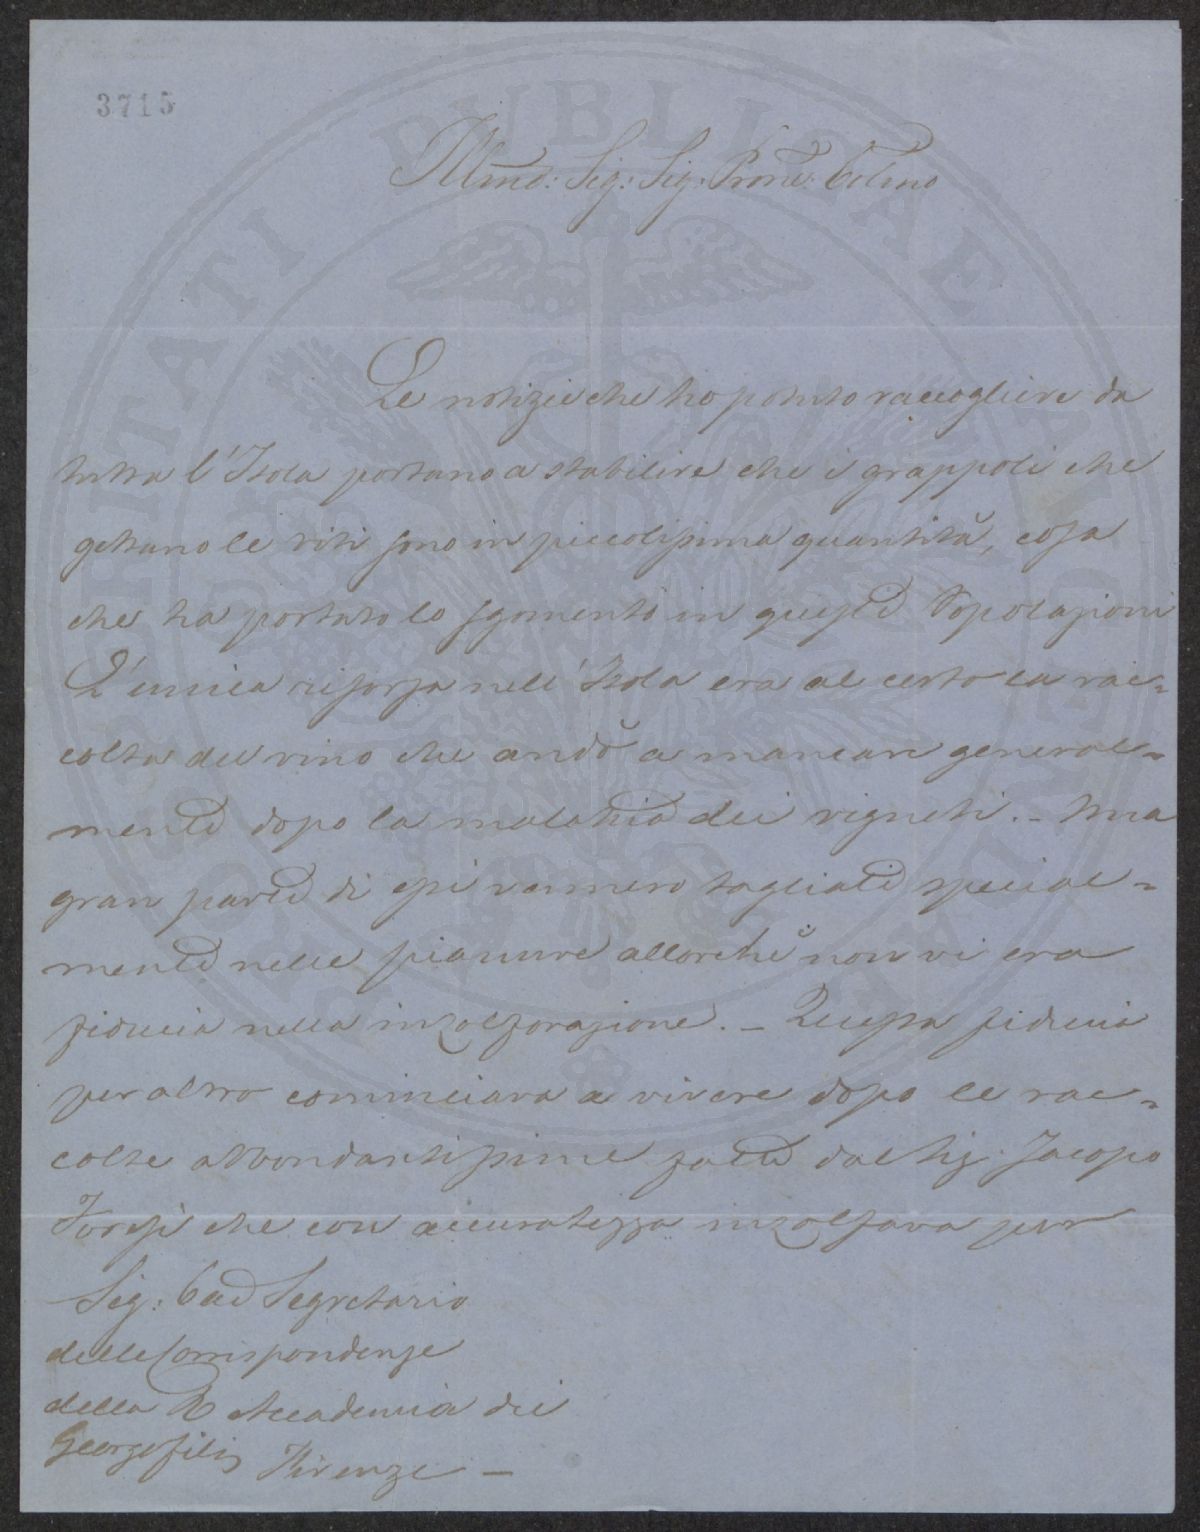 3715
PROSPERITATI PUBLICAE AUGENDAE
Illmo: Sig: Sig: Prone Colmo
Le notizie che ho potuto raccogliere da
tutta l'Isola portano a stabilire che i grappoli che
gettano le viti sono in piccolissima quantità, cosa
che ha portato lo sgomento in queste Popolazioni
L'unica risorsa nell'Isola era al certo la rac=
colta del vino che andò a mancare general=
mente dopo la malattia dei vigneti. - Una
gran parte di essi vennero tagliati special=
mente nelle pianure allorchè non vi era
fiducia nella inzolforazione. - Questa fiducia
per altro cominciava a vivere dopo le rac=
colte abbondantissime fatte dal Sig. Jacopo
Foresi che con accuratezza inzolfava per
Sig: Cav Segretario
delle Corrispondenze
della R Accademia dei
Georgofili
Firenze -